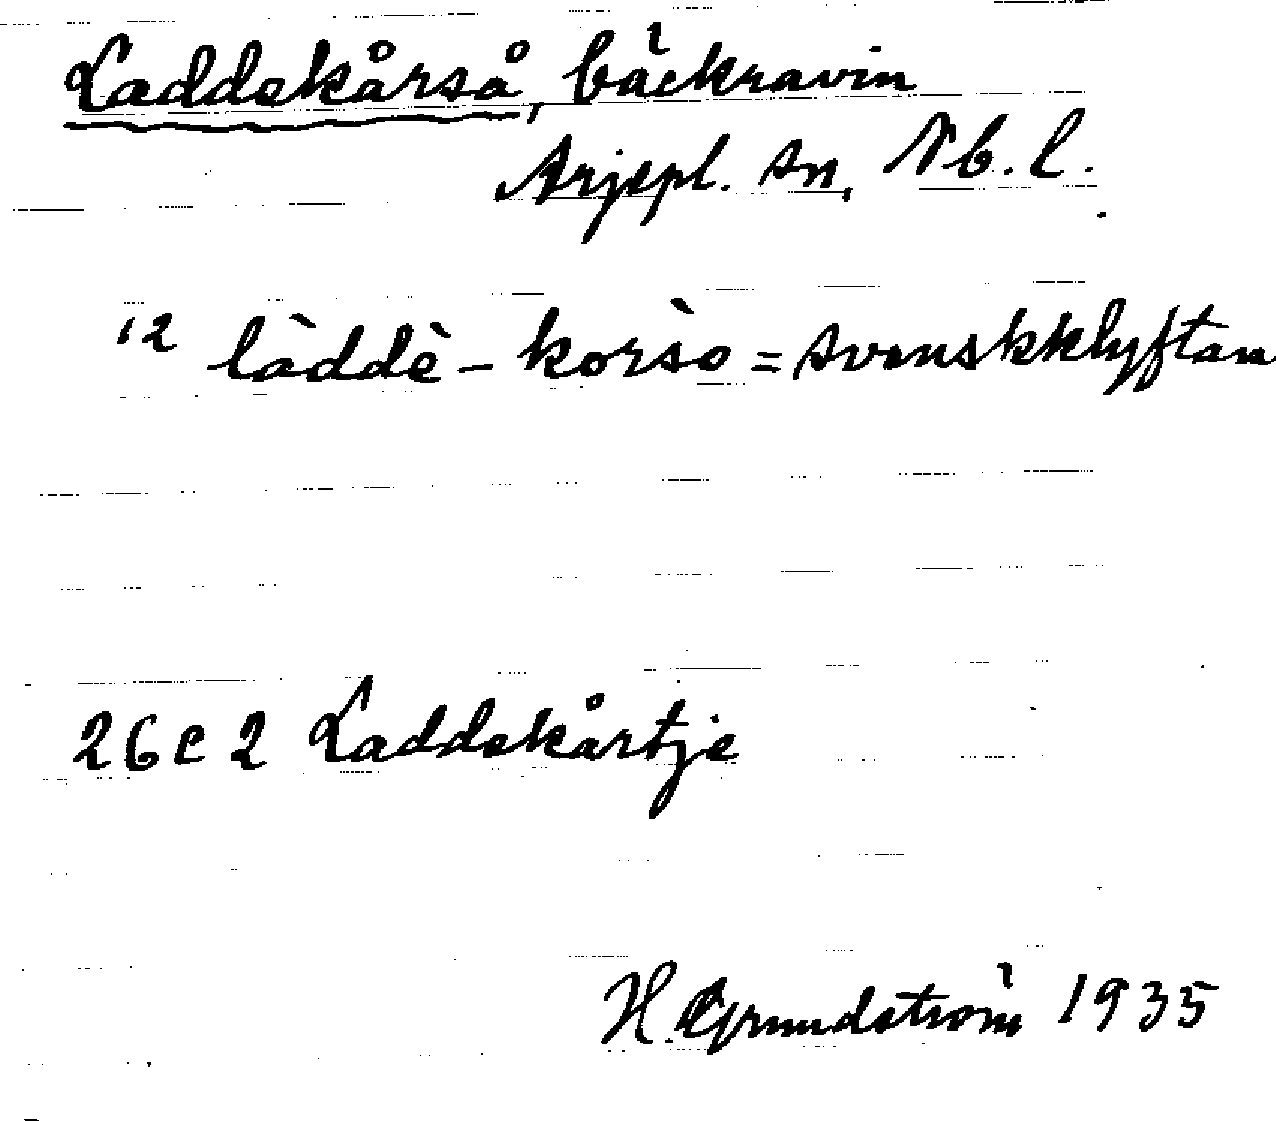 Laddekårså, bäckravin
Arjepl. sn, Nb. l.
12 làddè - korsò = svenskklyftan
26 e 2 Laddekårtje
H. Grundström 1935